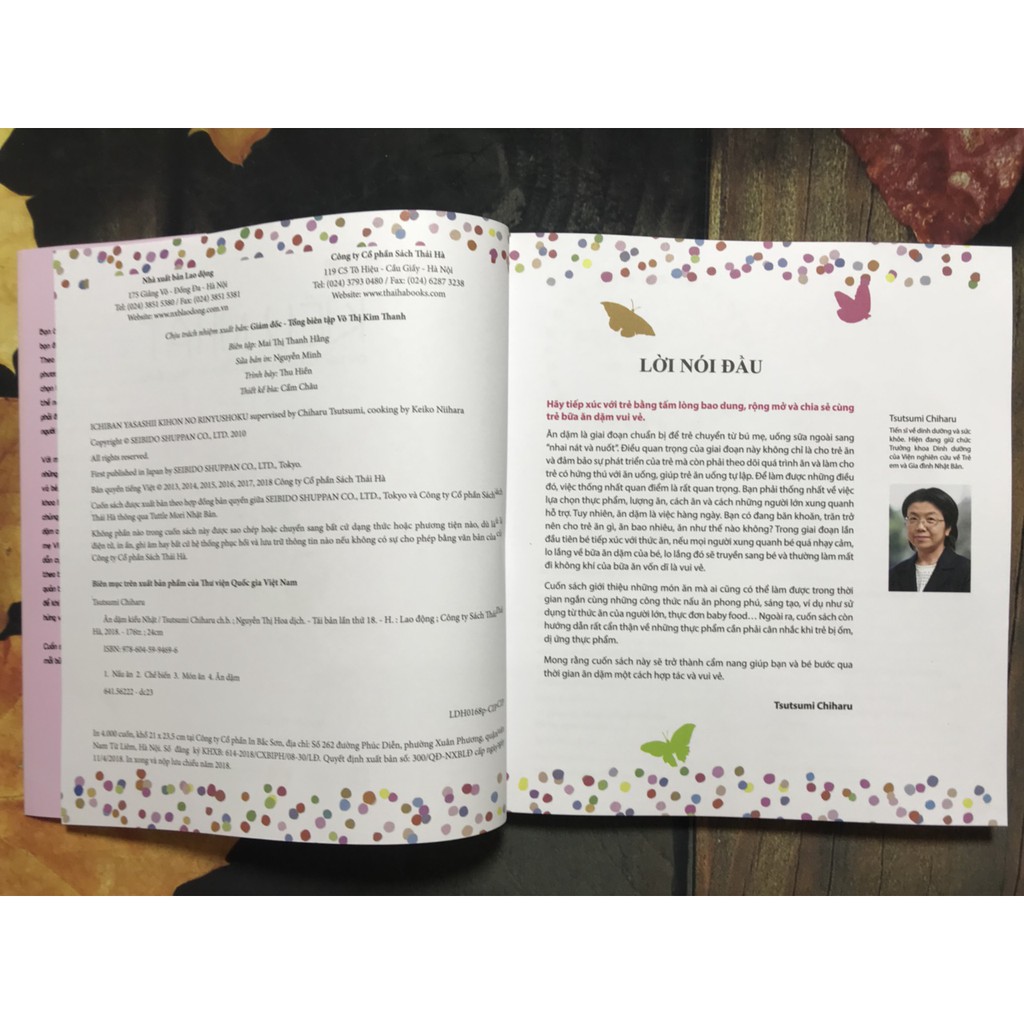 Nhà xuất bản Lao động
175 Giảng Võ - Đống Đa - Hà Nội
Tel: (024) 3851 5380 / Fax: (024) 3851 5381
Website: www.nxblaodong.com.vn
Công ty Cổ phần Sách Thái Hà
119 C5 Tô Hiệu - Cầu Giấy - Hà Nội
Tel: (024) 3793 0480 / Fax: (024) 6287 3238
Website: www.thaihabooks.com
Chịu trách nhiệm xuất bản: Giám đốc - Tổng biên tập Võ Thị Kim Thanh
Biên tập: Mai Thị Thanh Hằng
Sửa bản in: Nguyễn Minh
Trình bày: Thu Hiền
Thiết kế bìa: Cẩm Châu
ICHIBAN YASASHII KIHON NO RINYUSHOKU supervised by Chiharu Tsutsumi, cooking by Keiko Niihara
Copyright © SEIBIDO SHUPPAN CO., LTD. 2010
All rights reserved.
First published in Japan by SEIBIDO SHUPPAN CO., LTD., Tokyo.
Bản quyền tiếng Việt © 2013, 2014, 2015, 2016, 2017, 2018 Công ty Cổ phần Sách Thái Hà
Cuốn sách được xuất bản theo hợp đồng bản quyền giữa SEIBIDO SHUPPAN CO., LTD., Tokyo và Công ty Cổ phần Sách
Thái Hà thông qua Tuttle Mori Nhật Bản.
Không phần nào trong cuốn sách này được sao chép hoặc chuyển sang bất cứ dạng thức hoặc phương tiện nào, dù là
điện tử, in ấn, ghi âm hay bất cứ hệ thống phục hồi và lưu trữ thông tin nào nếu không có sự cho phép bằng văn bản của
Công ty Cổ phần Sách Thái Hà.
Biên mục trên xuất bản phẩm của Thư viện Quốc gia Việt Nam
Tsutsumi Chiharu
Ăn dặm kiểu Nhật / Tsutsumi Chiharu ch.b. ; Nguyễn Thị Hoa dịch. - Tái bản lần thứ 18. - H. : Lao động ; Công ty Sách Thái
Hà, 2018. - 176tr. ; 24cm
ISBN: 978-604-59-9469-6
1. Nấu ăn 2. Chế biến 3. Món ăn 4. Ăn dặm
641.56222 - dc23
LDH0168p-CIP
In 4.000 cuốn, khổ 21 x 23,5 cm tại Công ty Cổ phần In Bắc Sơn, địa chỉ: Số 262 đường Phúc Diễn, phường Xuân Phương, quận
Nam Từ Liêm, Hà Nội. Số đăng ký KHXB: 614-2018/CXBIPH/08-30/LĐ. Quyết định xuất bản số: 300/QĐ-NXBLĐ cấp ngày
11/4/2018. In xong và nộp lưu chiểu năm 2018.
LỜI NÓI ĐẦU
Hãy tiếp xúc với trẻ bằng tấm lòng bao dung, rộng mở và chia sẻ cùng
trẻ bữa ăn dặm vui vẻ.
Ăn dặm là giai đoạn chuẩn bị để trẻ chuyển từ bú mẹ, uống sữa ngoài sang
"nhai nát và nuốt". Điều quan trọng của giai đoạn này không chỉ là cho trẻ ăn
và đảm bảo sự phát triển của trẻ mà còn phải theo dõi quá trình ăn và làm cho
trẻ có hứng thú với ăn uống, giúp trẻ ăn uống tự lập. Để làm được những điều
đó, việc thống nhất quan điểm là rất quan trọng. Bạn phải thống nhất về việc
lựa chọn thực phẩm, lượng ăn, cách ăn và cách những người lớn xung quanh
hỗ trợ. Tuy nhiên, ăn dặm là việc hàng ngày. Bạn có đang băn khoăn, trăn trở
nên cho trẻ ăn gì, ăn bao nhiêu, ăn như thế nào không? Trong giai đoạn lần
đầu tiên bé tiếp xúc với thức ăn, nếu mọi người xung quanh bé quá nhạy cảm,
lo lắng về bữa ăn dặm của bé, lo lắng đó sẽ truyền sang bé và thường làm mất
đi không khí của bữa ăn vốn dĩ là vui vẻ.
Cuốn sách giới thiệu những món ăn mà ai cũng có thể làm được trong thời
gian ngắn cùng những công thức nấu ăn phong phú, sáng tạo, ví dụ như sử
dụng từ thức ăn của người lớn, thực đơn baby food... Ngoài ra, cuốn sách còn
hướng dẫn rất cẩn thận về những thực phẩm cần phải cân nhắc khi trẻ bị ốm,
dị ứng thực phẩm.
Mong rằng cuốn sách này sẽ trở thành cẩm nang giúp bạn và bé bước qua
thời gian ăn dặm một cách hợp tác và vui vẻ.
Tsutsumi Chiharu
Tsutsumi Chiharu
Tiến sĩ về dinh dưỡng và sức
khỏe. Hiện đang giữ chức
Trưởng khoa Dinh dưỡng
của Viện nghiên cứu về Trẻ
em và Gia đình Nhật Bản.